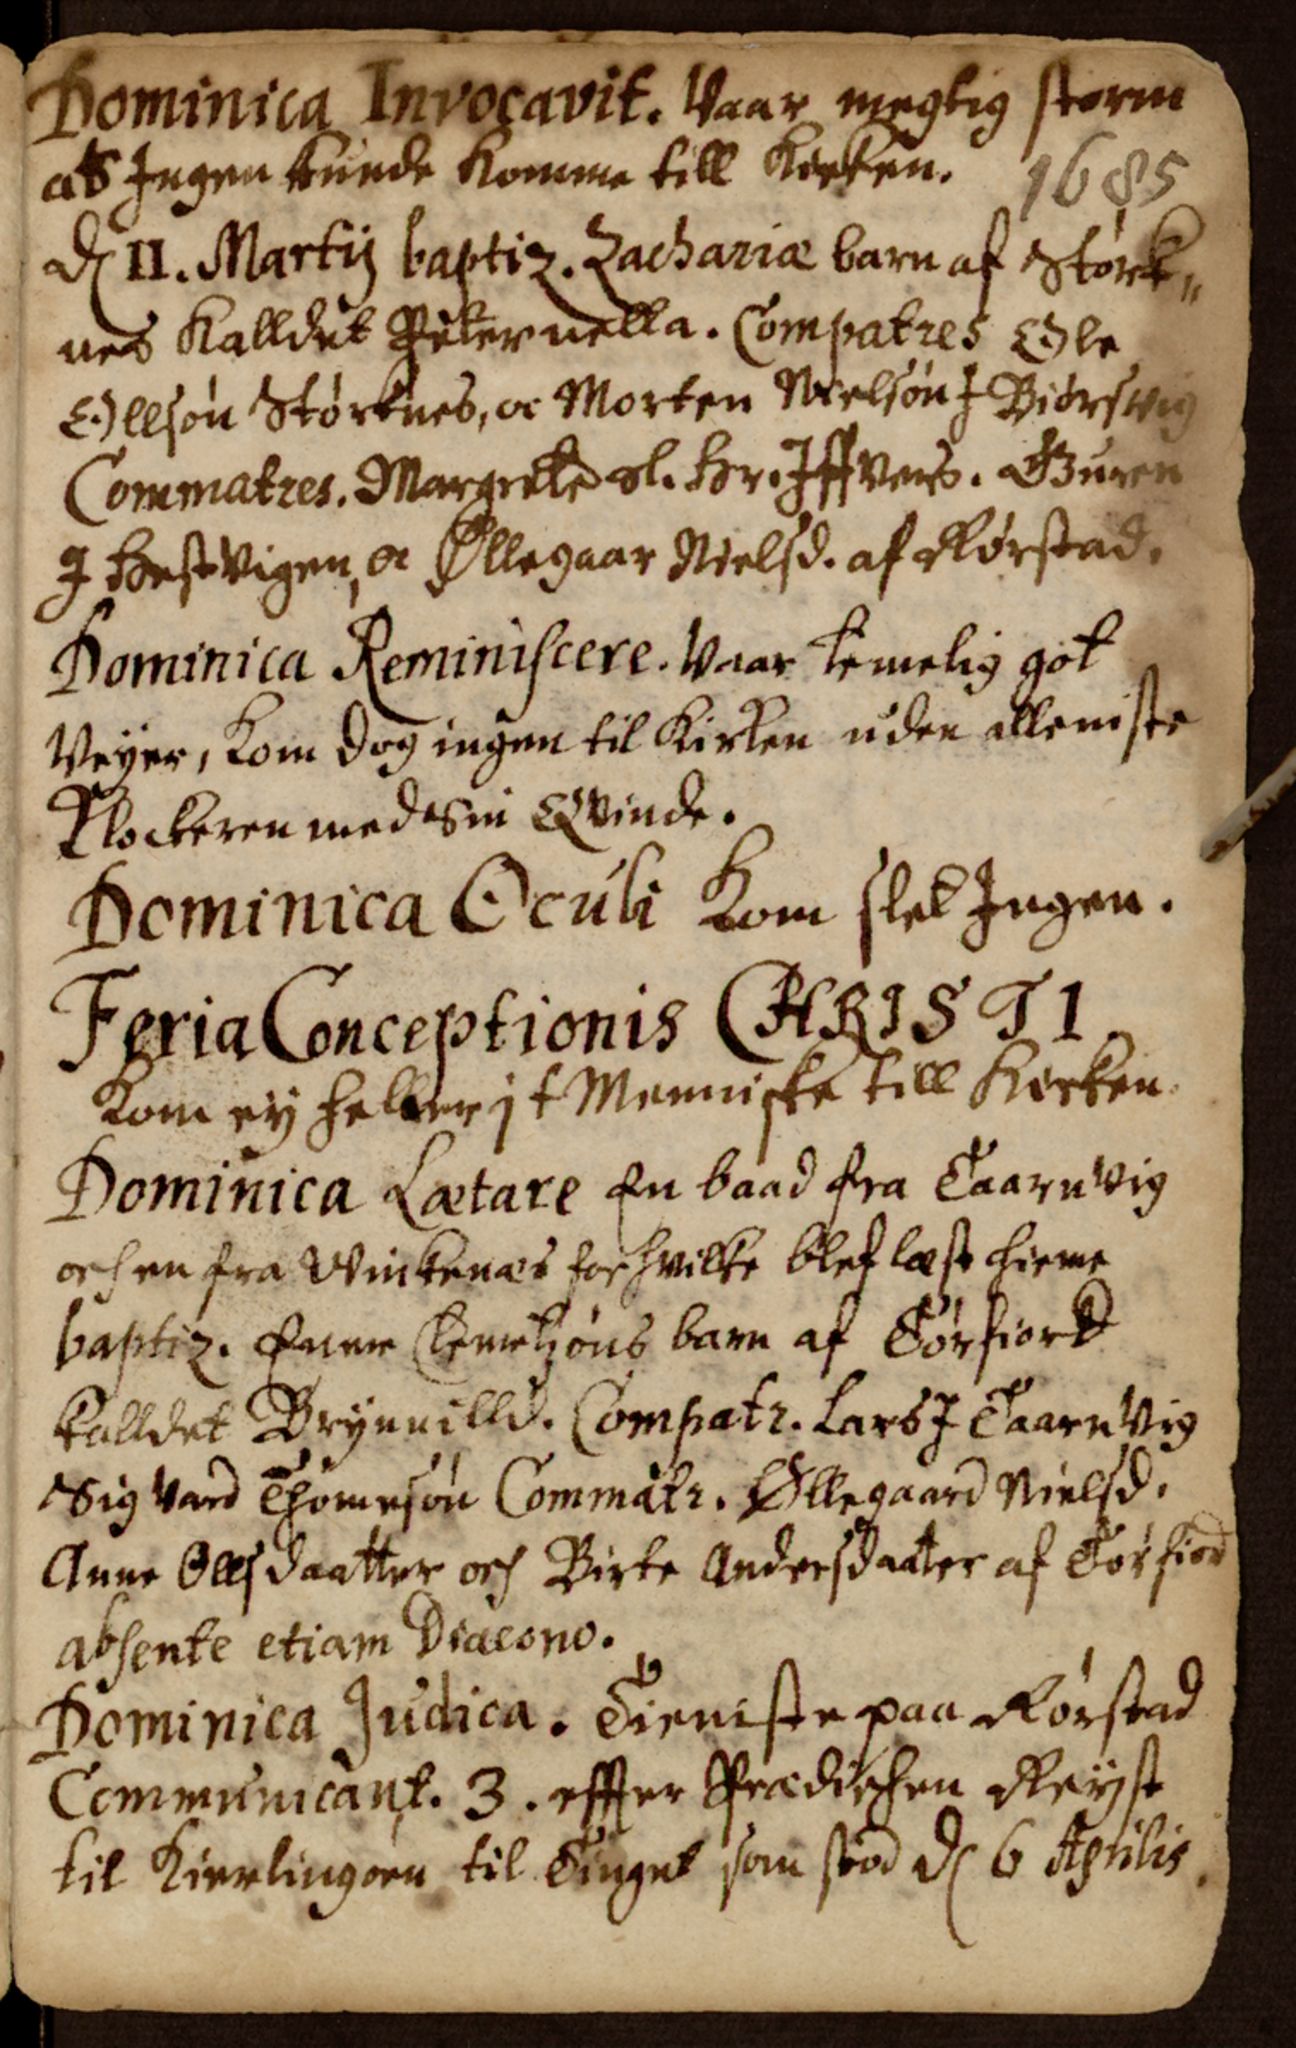 Dominica Invocavit. Vaar megtig storm
at Ingen kunde komme till Kirken.
1685
d. 11. Martij baptiz. Zachariæ barn af Størk„
nes kalldet Peternella. Compatres Ole
Ollsøn Størknes, oc Morten Nielsøn J Biørsvig
Commatres. Margrete sl. Hr. Iffvers. Guren
J Hestvigen, oc Øllegaar Nielsd. af Rørstad.
Dominica Reminiscere. Vaar temelig got
Veyer, kom dog ingen til Kirken uden alleniste
Klockeren med Sin Qvinde.
Dominica Oculi Kom slet Ingen.
Feria Conceptionis CHRISTI
Kom ey heller jt Menniske till Kirken.
Dominica Lætare En baad fra Taarnvig
och en fra Vinkenæs for hvilke blef læst hieme
baptiz. Enne barn af Tørfiord
kalldet Brynnilld. Compatr. Lars J Taarnvig
Sigvard Thomesøn Commatr. Øllegaard Nielsd.
Anne Ollsdaatter och Birte Andersdaater af Tørfiord
absente etiam Diacono.
Dominica Judica. Tieniste paa Rørstad
Communicant. 3. effter Prædichen Reyst
til Kierlingøen til Tinget som stod d. 6 Aprilis.